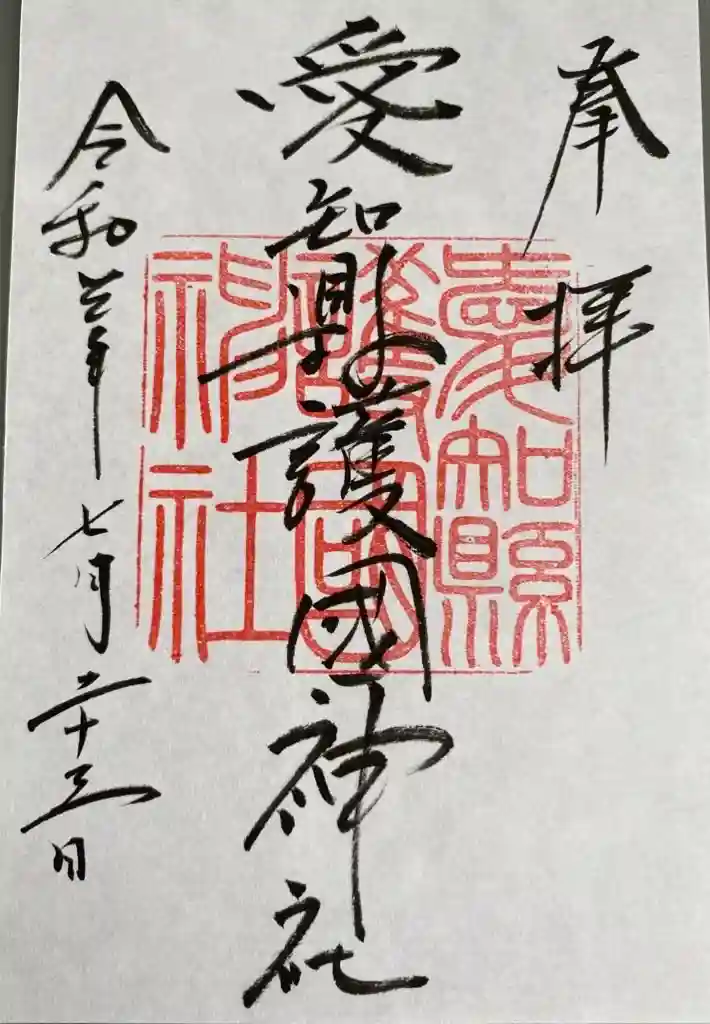 奉拝
愛知縣護國神社
愛知縣護國神社
令和六年七月二十三日